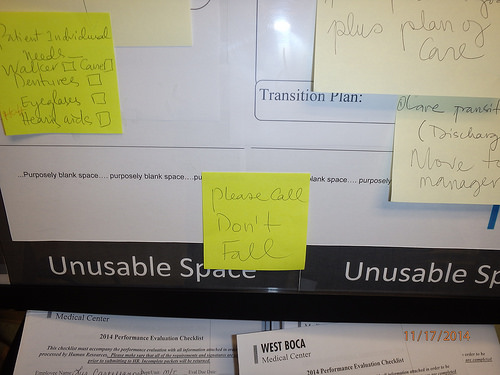 Patient Individual
Needs
Walker □ Cane □
Dentures □
Eyeglasses □
Hearing aids □
plus plan of
care
Transition Plan:
(Discharg
Move t
manager
...Purposely blank space.... purposely blank space....pu
lank space.... purposely
Please Call
Don't
Fall
Unusable Space
Unusable Sp
Medical Center
2014 Performance Evaluation Checklist
This checklist must accompany the performance evaluation with all information attached in order
processed by Human Resources. Please make sure that all of the requirements and signatures are
prior to submitting to HR. Incomplete packets will be returned.
Employee Name:
Eval Due Date
WEST BOCA
Medical Center
2014 Performance Evaluation Checklist
11/17/2014